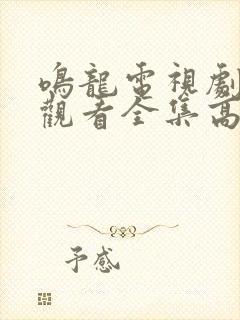 鳴龍電視劇
觀看全集高
予感